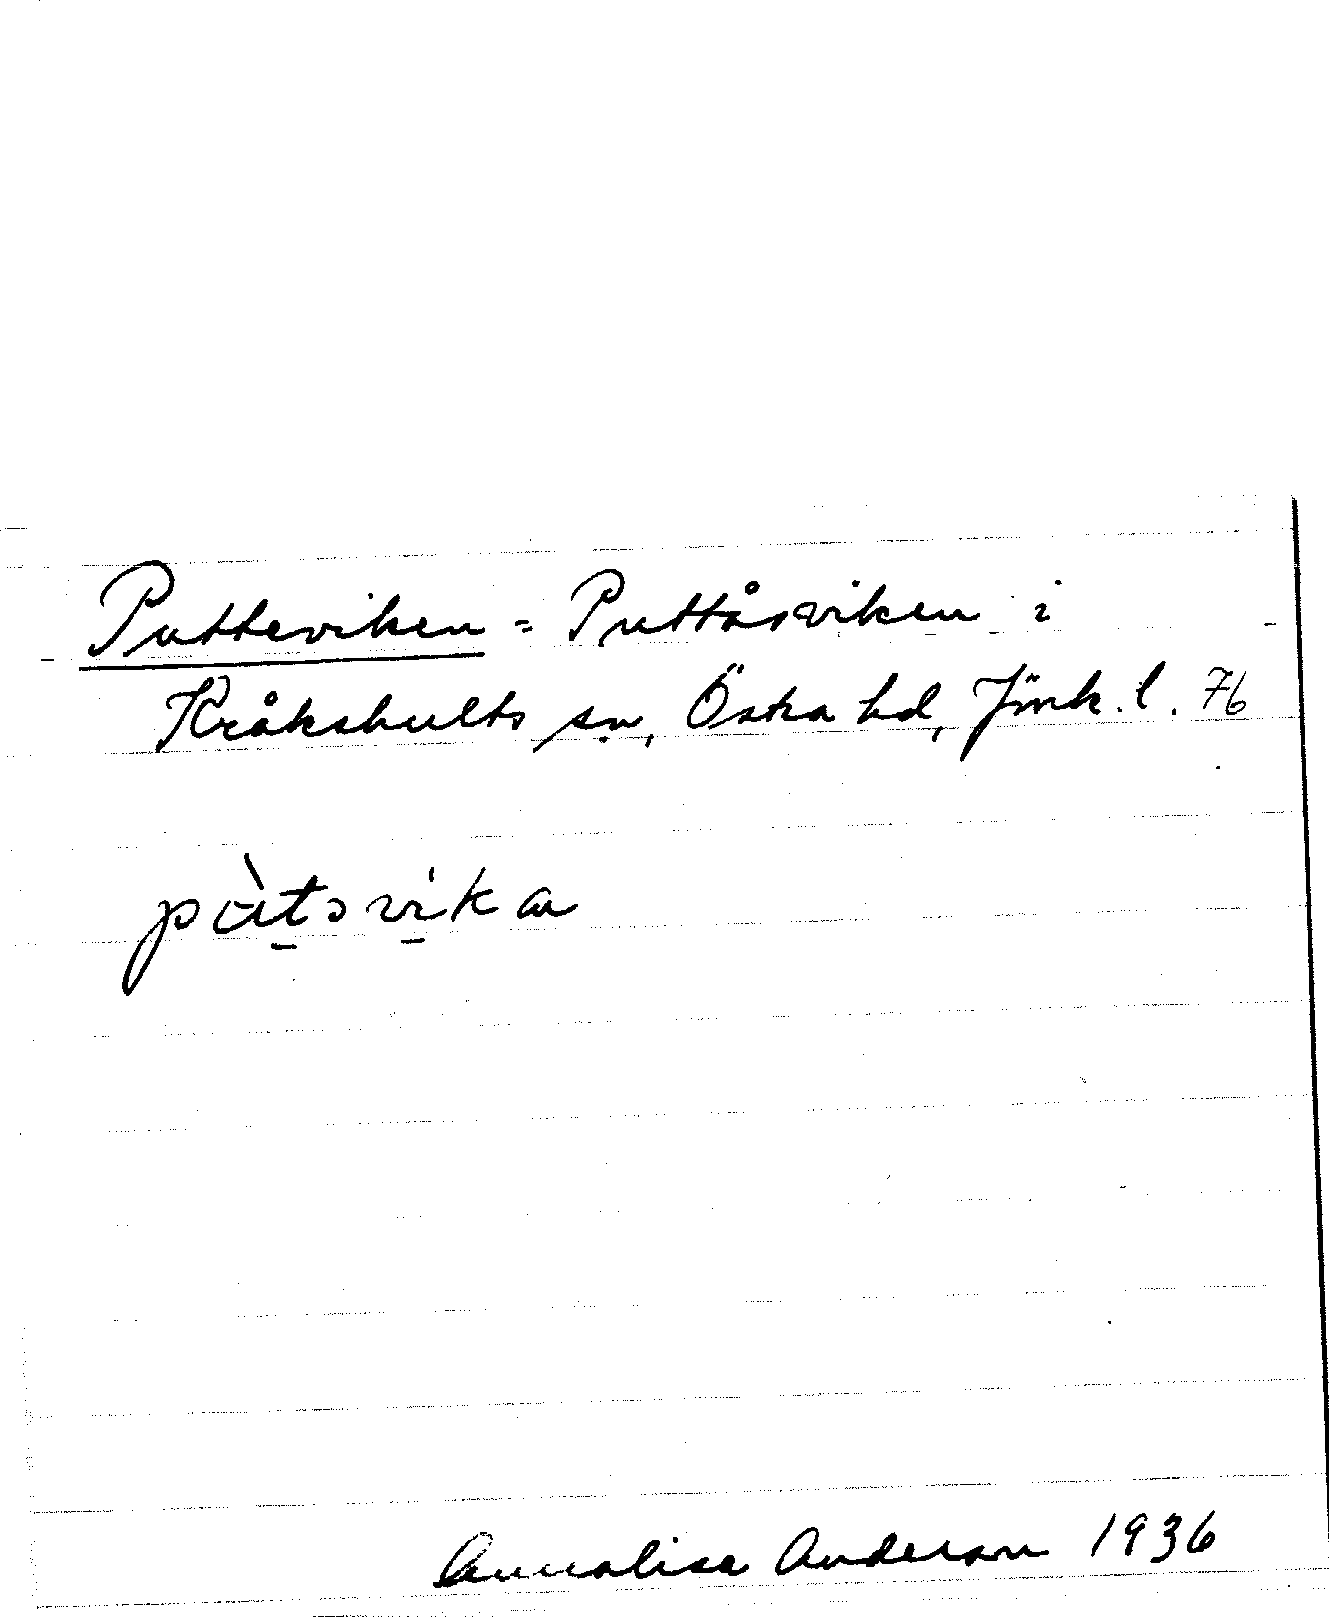 Putteviken = Puttåsviken i
Kråkshults sn, Östra hd, Jönk. l. 76
Annalisa Anderson 1936